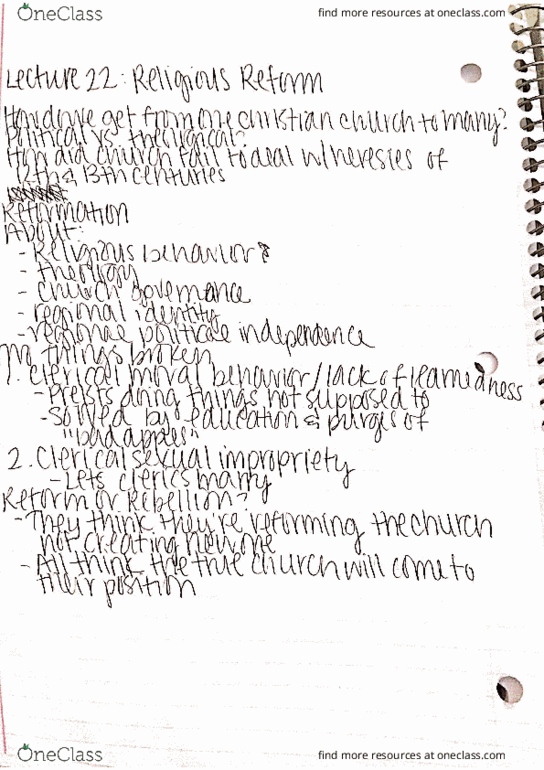 OneClass
find more resources at oneclass.com
Lecture 22: Religious Reform
How do we get from one christian church to many?
Political vs. theological?
How did church fail to deal w/ heresies of
12th & 13th centuries
Reformation
About:
- Religious behavior
- theology
- church governance
- regional identity
- regional political independence
things broken
1. clerical moral behavior/lack of learnedness
- Preists doing things not supposed to
- Solved by education & purges of
"bad apples"
2. Clerical sexual impropriety
- Lets clerics marry
Reform or Rebellion?
- They think they're reforming the church
not creating new one
- All think the true church will come to
their position
OneClass
find more resources at oneclass.com